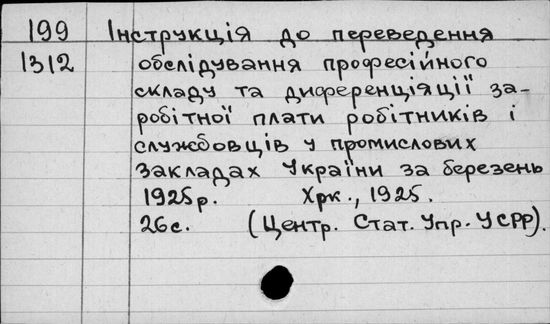 199 Інструкція до переведення
1312 обслідування професійного
складу та диференціяції за-
робітної плати робітників і
службовців у промислових
закладах України за березень
1925р. Хрк., 1925.
26с. (Центр. Стат. Упр. УСРР).